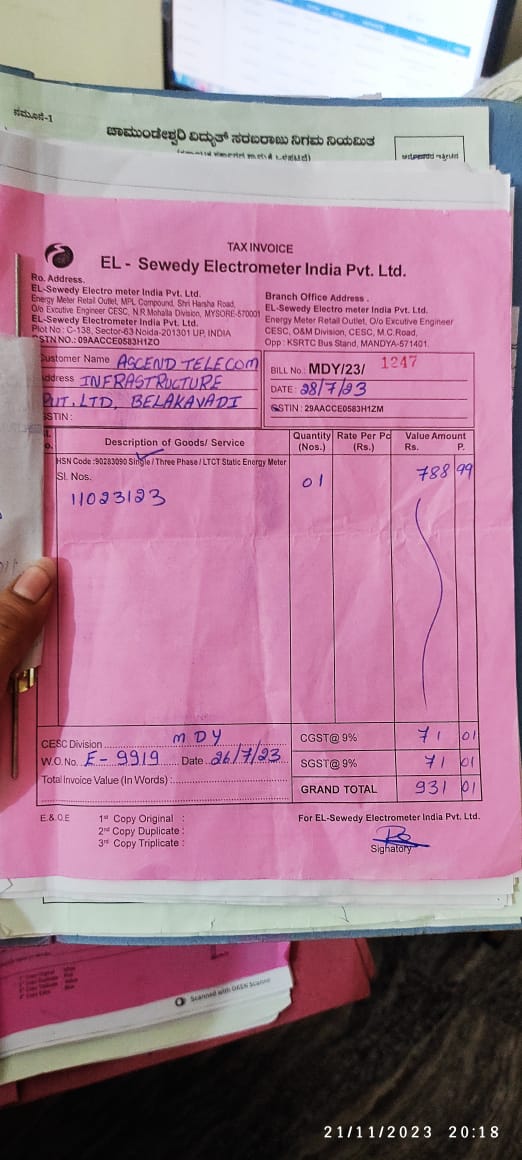 ನಮೂನೆ-1
ಚಾಮುಂಡೇಶ್ವರಿ ವಿದ್ಯುತ್ ಸರಬರಾಜು ನಿಗಮ ನಿಯಮಿತ
TAX INVOICE
EL - Sewedy Electrometer India Pvt. Ltd.
Ro. Address.
EL-Sewedy Electro meter India Pvt. Ltd.
Energy Meter Retail Outlet, MPL Compound, Shri Harsha Road,
O/o Excutive Engineer CESC, N.R.Mohalla Division, MYSORE-570001
EL-Sewedy Electrometer India Pvt. Ltd.
Plot No : C-138, Sector-63 Noida-201301 UP, INDIA
GSTN NO.: 09AACCE0583H1ZO
Branch Office Address .
EL-Sewedy Electro meter India Pvt. Ltd.
Energy Meter Retail Outlet, O/o Excutive Engineer
CESC, O&M Division, CESC, M.C.Road,
Opp : KSRTC Bus Stand, MANDYA-571401.
Customer Name ASCEND TELECOM
Address INFRASTRUCTURE
PVT. LTD, BELAKAVADI
GSTIN :
BILL No.: MDY/23/ 1247
DATE : 28/7/23
GSTIN : 29AACCE0583H1ZM
Description of Goods/ Service Quantity (Nos.) Rate Per Pc (Rs.) Value Amount Rs. P.
HSN Code :90283090 Single / Three Phase / LTCT Static Energy Meter
Sl. Nos. 01 788 99
11023123
CESC Division MDY CGST@ 9% 71 01
W.O. No. E-9919 Date 26/7/23 SGST@ 9% 71 01
Total Invoice Value (In Words) : GRAND TOTAL 931 01
E.& O.E 1st Copy Original : For EL-Sewedy Electrometer India Pvt. Ltd.
2nd Copy Duplicate :
3rd Copy Triplicate : Signatory
Scanned with OKEN Scanner
21/11/2023 20:18